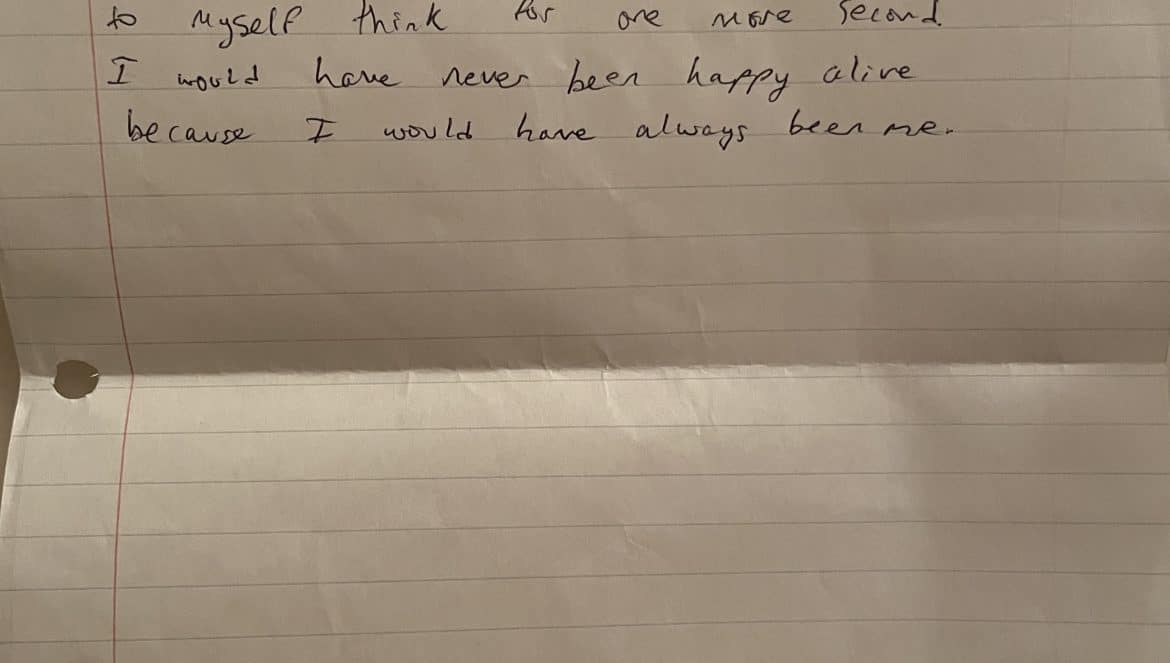 to myself think for one more second
I would have never been happy alive
because I would have always been me.